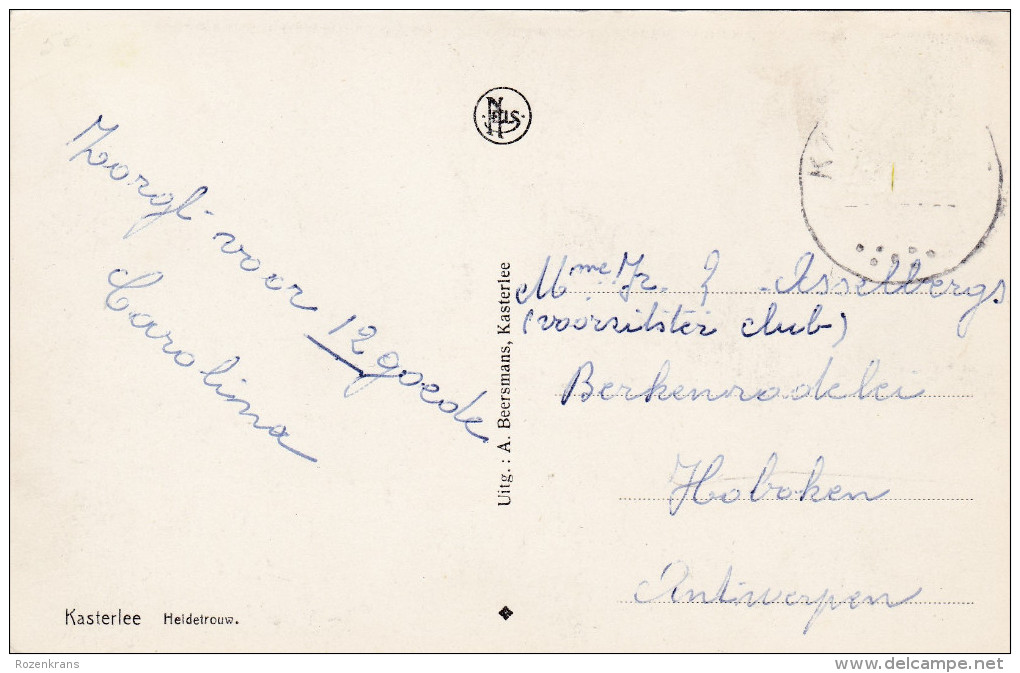 NELS
Zorgt voor 12 goede
Carolina
Uitg. : A. Beersmans, Kasterlee
Mme. Jr. Asselbergs
(voorzitster club)
Berkenrodelei
Hoboken
Antwerpen
Kasterlee Heidetrouw.
Rozenkrans
www.delcampe.net